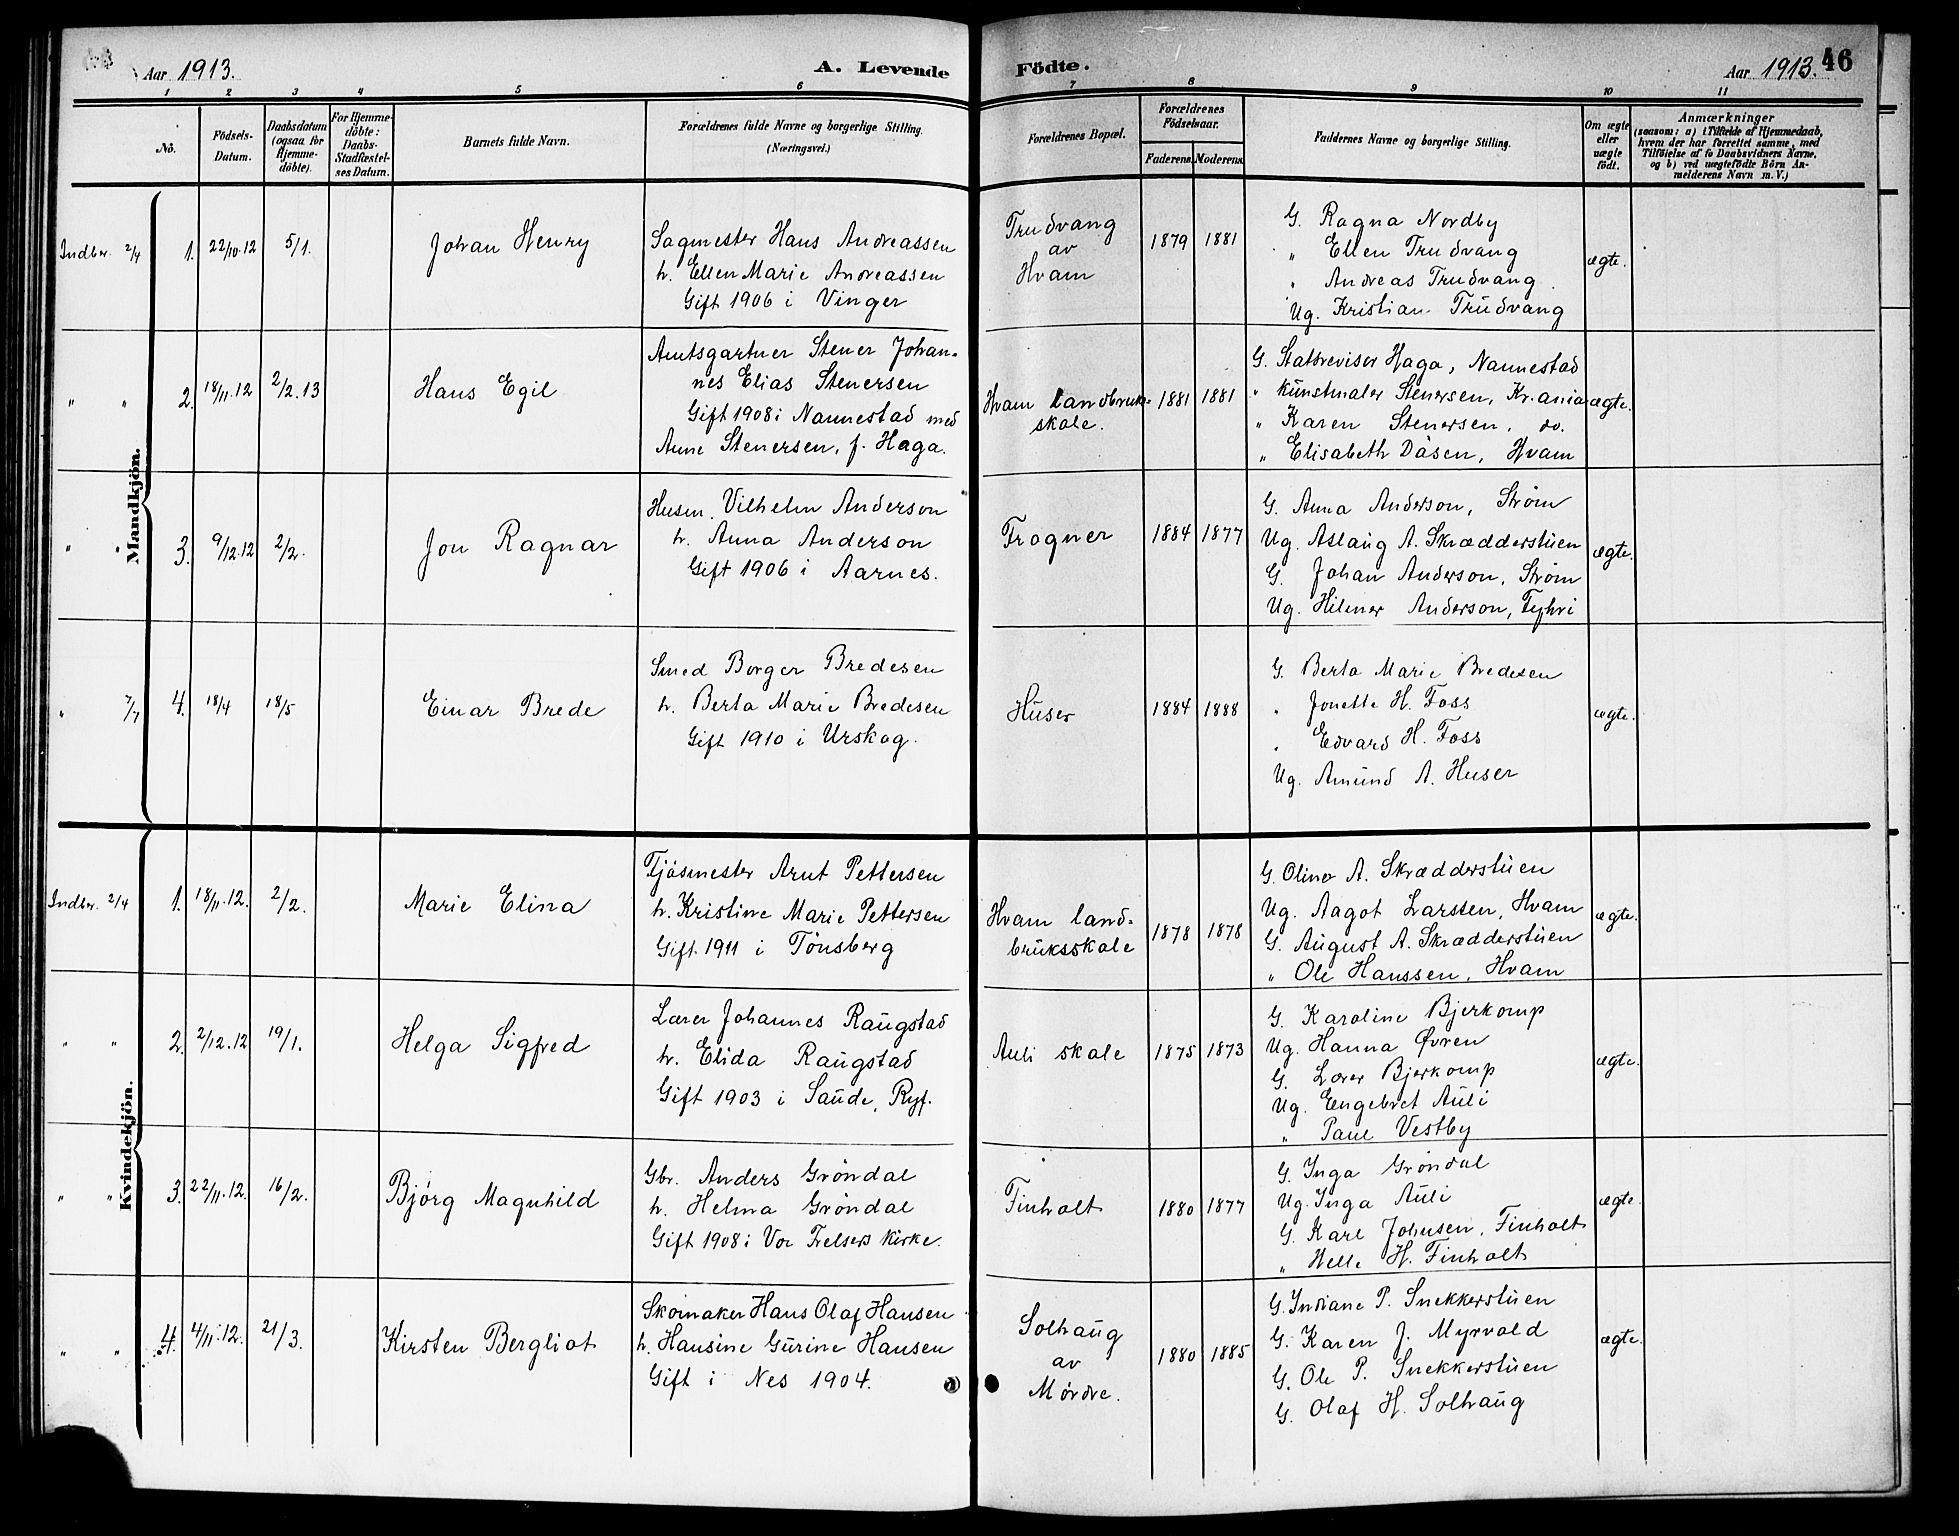 Aar 1913.
A. Levende
Födte.
Aar 1913.
46
1 2 3 4 5 6 7 8 9 10 11
Nô.
Födsels-
Datum.
Daabsdatum
(ogsaa for
Hjemme-
döbte).
For Hjemme-
döbte:
Daabs-
Stadfæstel-
ses Datum.
Barnets fulde Navn.
Forældrenes fulde Navne og borgerlige Stilling.
(Næringsvei.)
Forældrenes Bopæl.
Forældrenes
Födselsaar.
Faderens. Moderens.
Faddernes Navne og borgerlige Stilling.
Om ægte
eller
uægte
födt.
Anmærkninger
(saasom: a) i Tilfælde af Hjemmedaab,
hvem der har forrettet samme, med
Tilföielse af to Daabsvidners Navne.
og b) ved uægtefödte Börn An-
melderens Navn m. V.)
Mandkjön.
Indber. 2/4
1.
22/10.12
5/1.
Johan Henry
Sagmester Hans Andreassen
h. Ellen Marie Andreassen
Gift 1906 i Vinger
Trudvang
av
Hvam
1879
1881
G. Ragna Nordby
" Ellen Trudvang
" Andreas Trudvang
Ug. Kristian Trudvang
ægte.
" "
2.
18/11.12
2/2.13
Hans Egil
Amtsgartner Stener Johan-
nes Elias Stenersen
Gift 1908 i Nannestad med
Anne Stenersen, f. Haga.
Hvam landbruk-
skole.
1881
1881
G. Statsrevisor Haga, Nannestad
" Kunstmaler Stenersen, Kr.ania
" Karen Stenersen, do.
" Elisabeth Dåsen, Hvam
ægte.
" "
3.
9/12.12
2/2.
Jon Ragnar
Husm. Vilhelm Anderson
h. Anna Anderson
Gift 1906 i Aarnes.
Frogner
1884
1877
G. Anna Anderson, Strøm
Ug. Aslaug A. Skrædderstuen
G. Johan Anderson, Strøm
Ug. Hilmer Anderson,
ægte.
" 7/7
4.
18/4
18/5
Einar Brede
Smed Borger Bredesen
h. Berta Marie Bredesen
Gift 1910 i Urskog.
Huser
1884
1888
G. Berta Marie Bredesen
" Jonette H. Foss
" Edvard H. Foss
Ug. Amund A. Huser
ægte.
Kvindekjön.
Indber. 2/4
1.
18/11.12.
2/2.
Marie Elina
Fjøsmester Arnt Pettersen
h. Kristine Marie Pettersen
Gift 1911 i Tønsberg
Hvam land-
bruksskole
1878
1878
G. Oline A. Skrædderstuen
Ug. Aagot Larssen, Hvam
G. August A. Skrædderstuen
" Ole Hanssen, Hvam
ægte.
" "
2.
2/12.12
19/1.
Helga Sigfred
Lærer Johannes Raugstad
h. Elida Raugstad
Gift 1903 i Saude, Ryf.
Auli skole
1875
1873
G. Karoline Bjerkomp
Ug. Hanna Øvren
G. Lærer Bjerkomp
Ug. Engebret Auli
" Paul Vestby
ægte.
" "
3.
22/11.12.
16/2.
Bjørg Magnhild
Gbr. Anders Grøndal
h. Helma Grøndal
Gift 1908 i Vor Frelsers kirke.
Finholt
1880
1877
G. Inga Grøndal
Ug. Inga Auli
G. Karl Johnsen, Finholt
" Helle H. Finholt
ægte.
" "
4.
4/11.12.
21/3.
Kirsten Bergliot
Skomaker Hans Olaf Hansen
h. Hansine Gurine Hansen
Gift i Nes 1904.
Solhaug
av
Mørdre.
1880
1885
G. Indiane P. Snekkerstuen
G. Karen J. Myrvold
G. Ole P. Snekkerstuen
G. Olaf H. Solhaug
ægte.